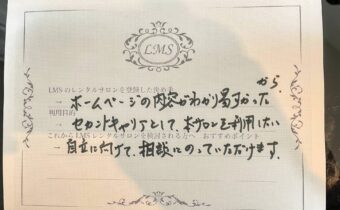 LMS
LMSのレンタルサロンを登録した決め手
→ ホームページの内容がわかり易すかったから。
利用目的
→ セカンドキャリアとして、本サロンを利用したい
これからLMSレンタルサロンを検討される方へ おすすめポイント
→ 自立に向けて、相談にのっていただけます。